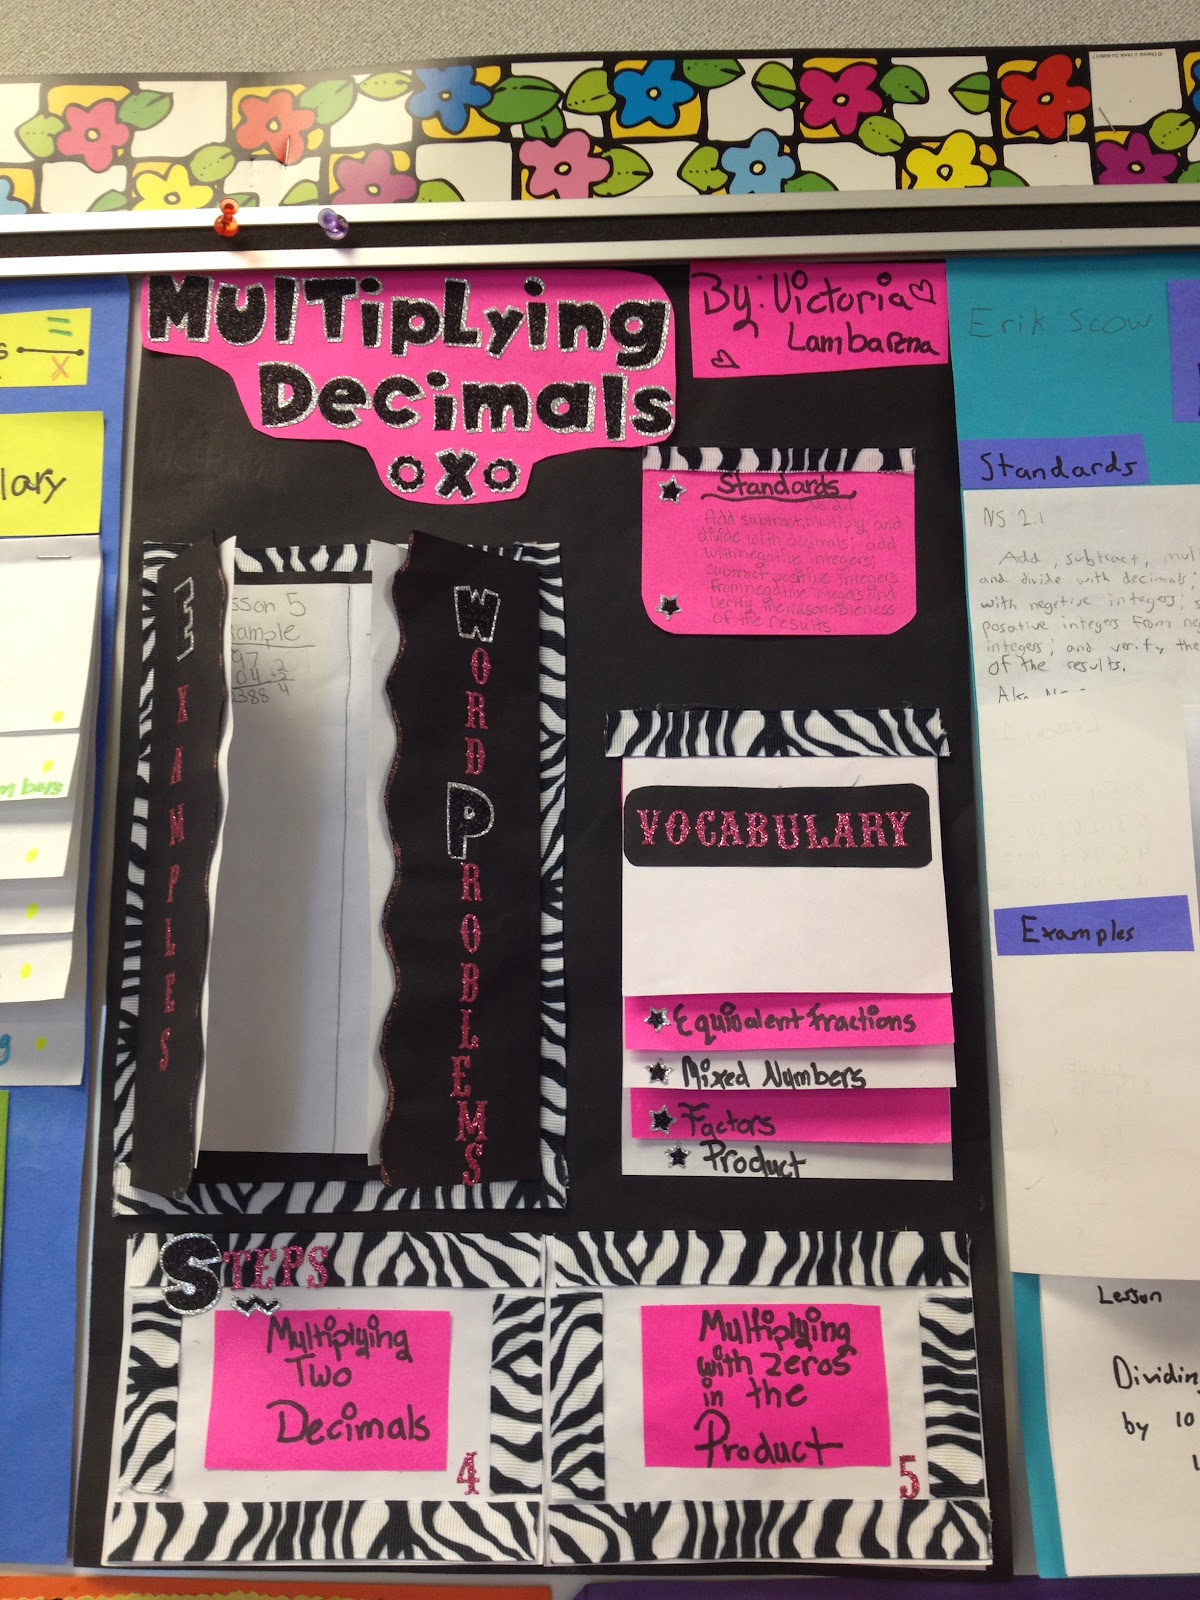 Multiplying
Decimals
oXo
By: Victoria
Lambarena
Standards
NS 2.1
Add subtract, multiply and
divide with decimals; add
with negative integers;
subtract positive integers
from negative integers and
verify the reasonableness
of the results.
Examples
sson 5
ample
97
04
388
Word Problems
Vocabulary
Equivalent Fractions
Mixed Numbers
Factors
Product
Steps
Multiplying
Two
Decimals
4
Multiplying
with zeros
in the
Product
5
lary
mbers
g
Erik Scow
Standards
NS 2.1
Add, subtract, mul
and divide with decimals;
with negetive integers;
posative integers from ne
integers; and verify the
of the results.
Examples
Lesson
Dividin
by 10